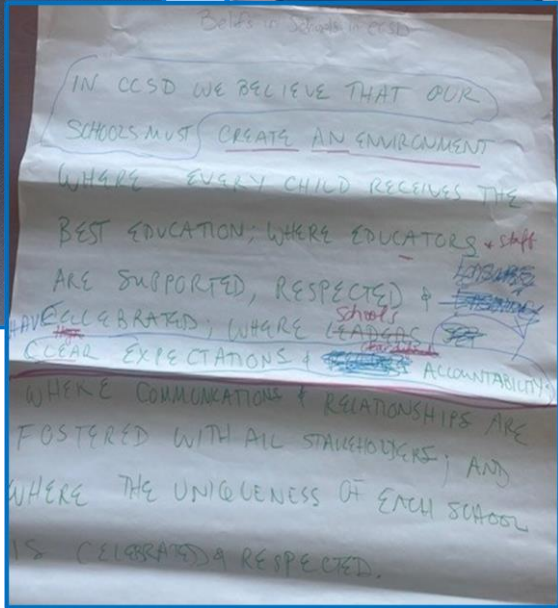 Beliefs in Schools in CCSD
IN CCSD WE BELIEVE THAT OUR
SCHOOLS MUST CREATE AN ENVIRONMENT
WHERE EVERY CHILD RECEIVES THE
BEST EDUCATION; WHERE EDUCATORS + staff
ARE SUPPORTED, RESPECTED &
schools
HAVE CELEBRATED; WHERE LEADERS
CLEAR EXPECTATIONS & ACCOUNTABILITY;
WHERE COMMUNICATIONS & RELATIONSHIPS ARE
FOSTERED WITH ALL STAKEHOLDERS; AND
WHERE THE UNIQUENESS OF EACH SCHOOL
IS CELEBRATED & RESPECTED.